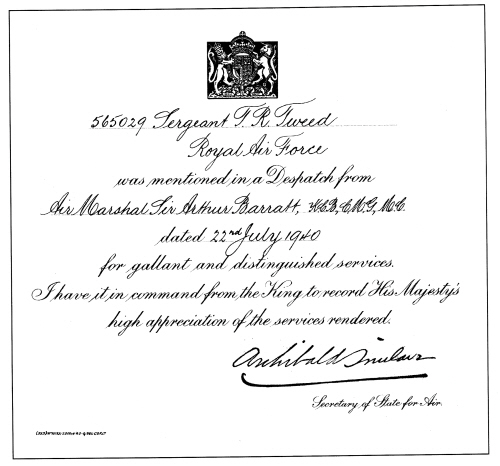 565029 Sergeant T. R. Tweed
Royal Air Force
was mentioned in a Despatch from
Air Marshal Sir Arthur Barratt, K.C.B, C.M.G, M.C.
dated 22nd July 1940
for gallant and distinguished services.
I have it in command from the King to record His Majesty's
high appreciation of the services rendered.
Archibald Sinclair
Secretary of State for Air.